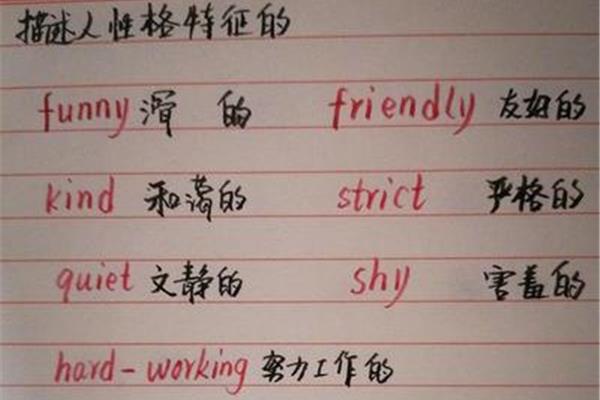 描述人性格特征的
funny 滑 的 friendly 友好的
kind 和蔼的 strict 严格的
quiet 文静的 shy 害羞的
hard-working 努力工作的